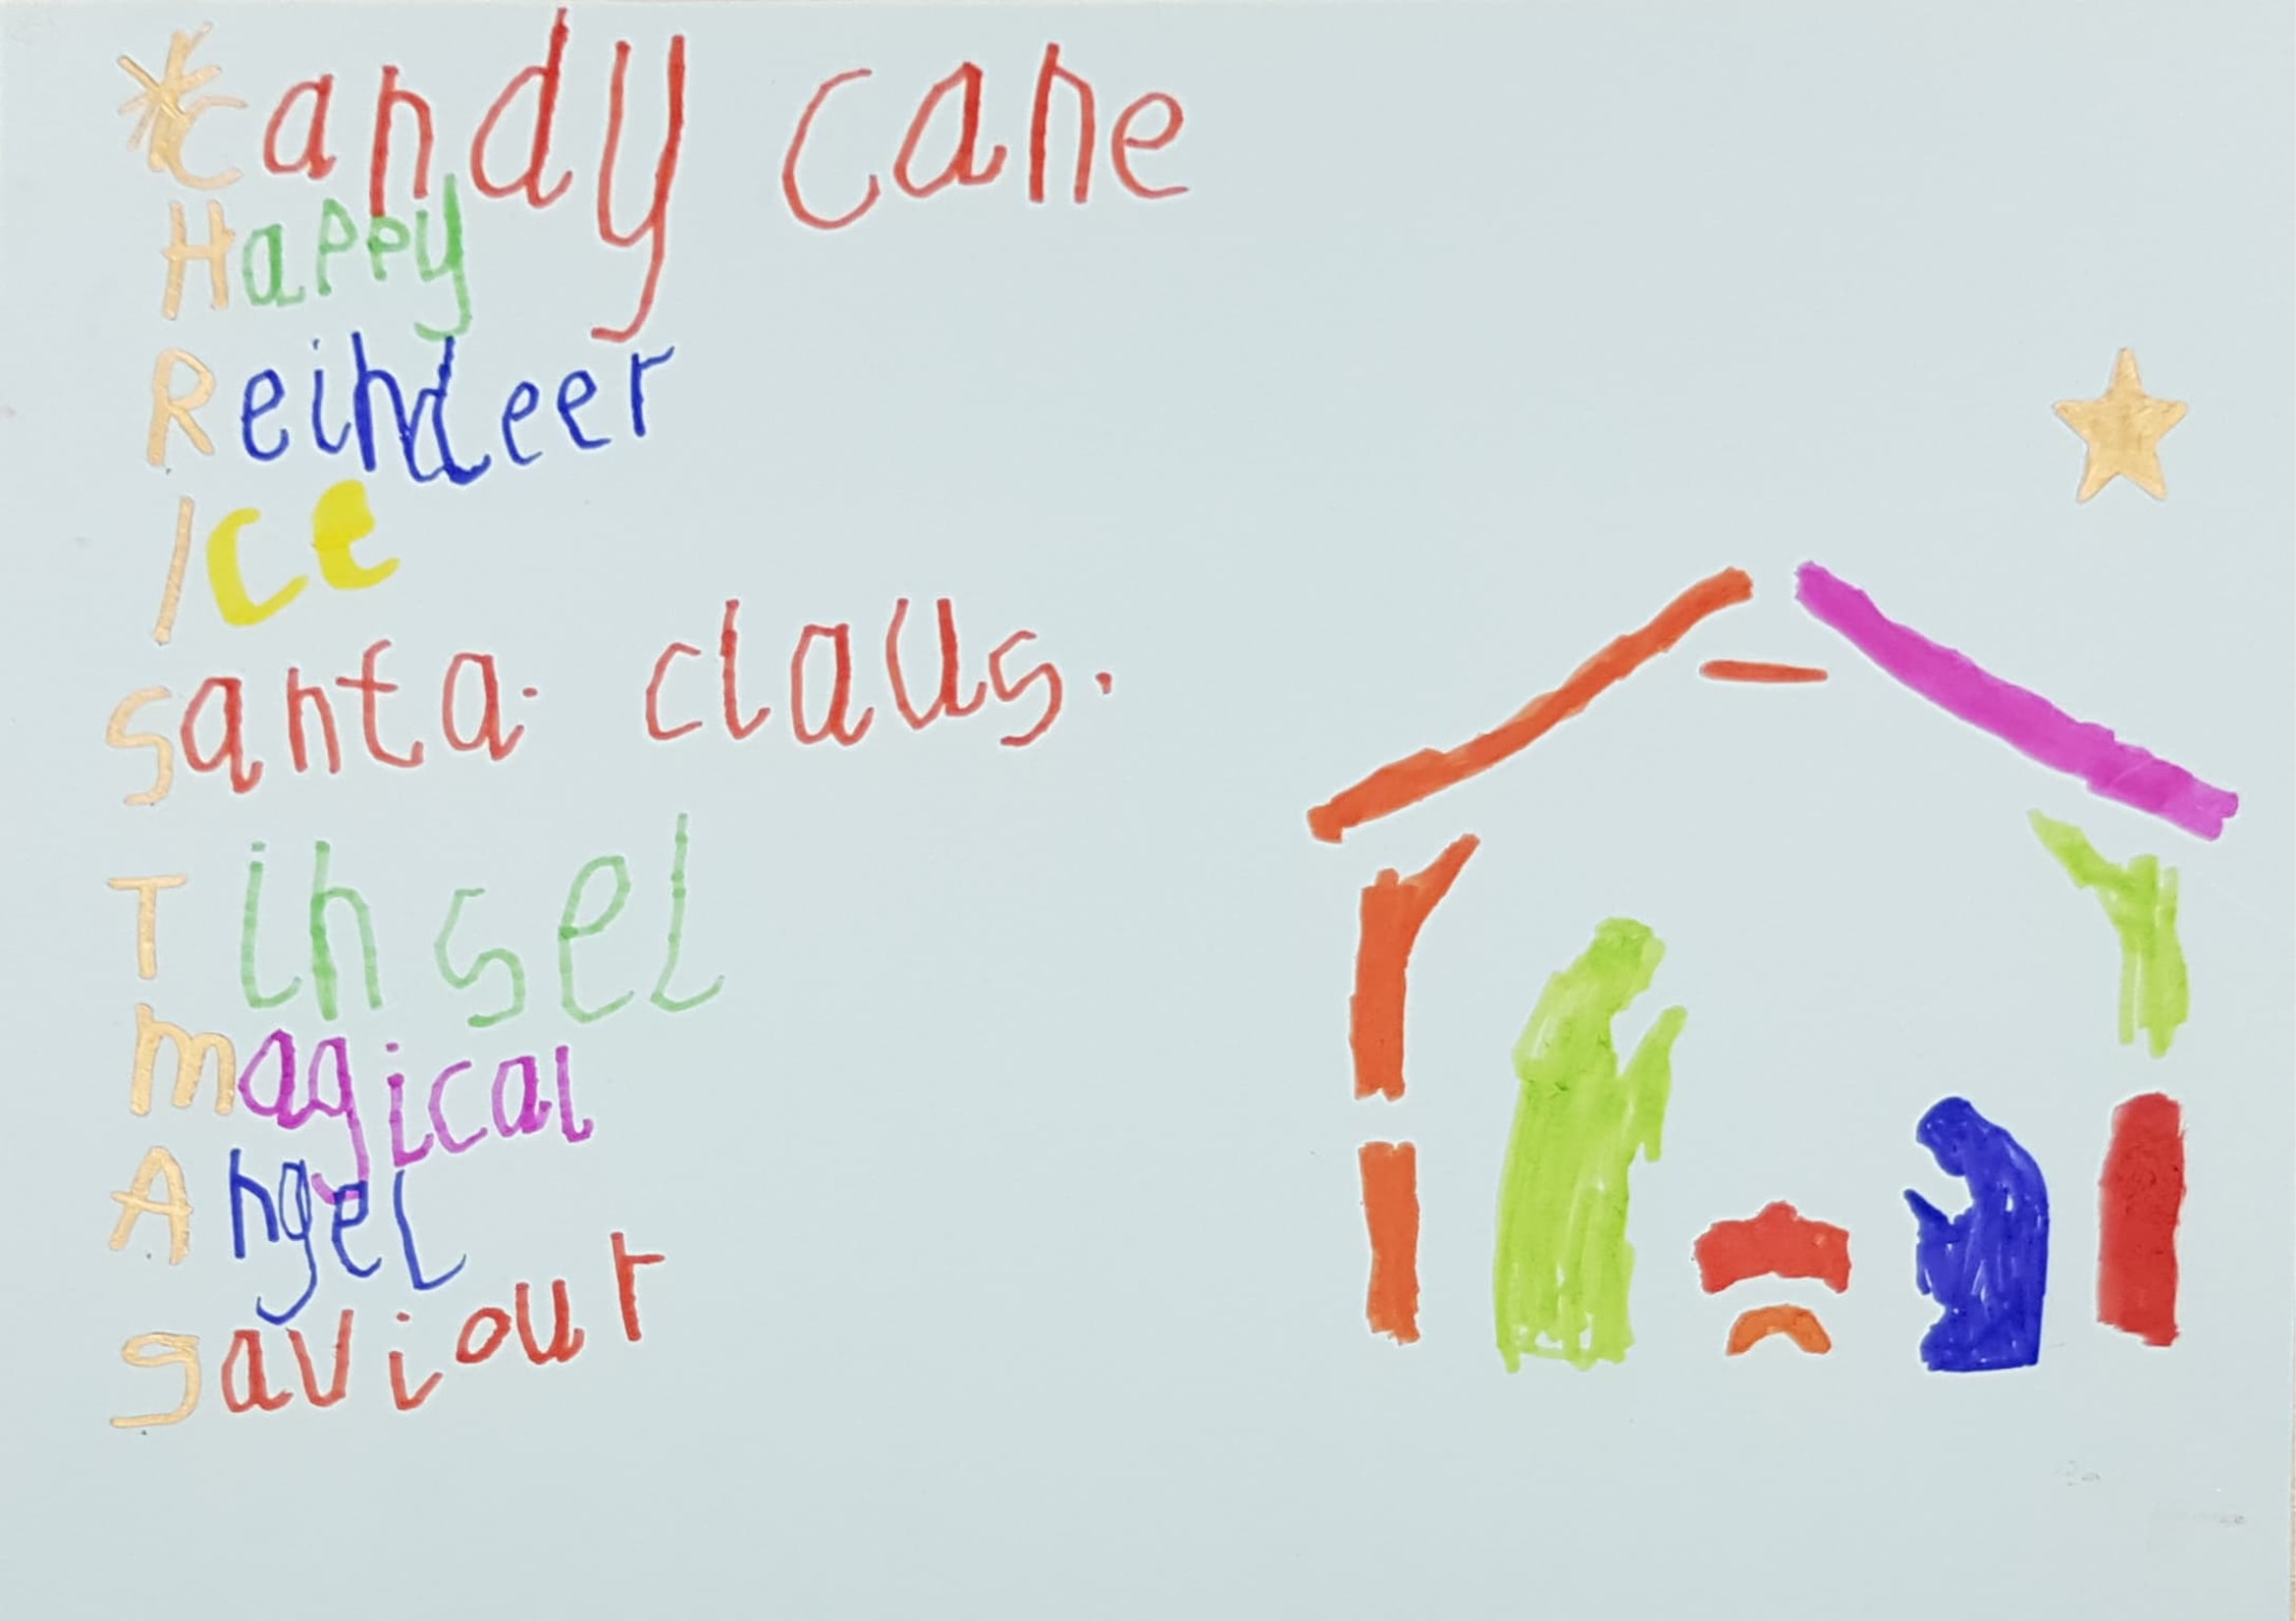 Candy cane
Happy
Reindeer
Ice
Santa. claus.
Tinsel
magical
Angel
saviour